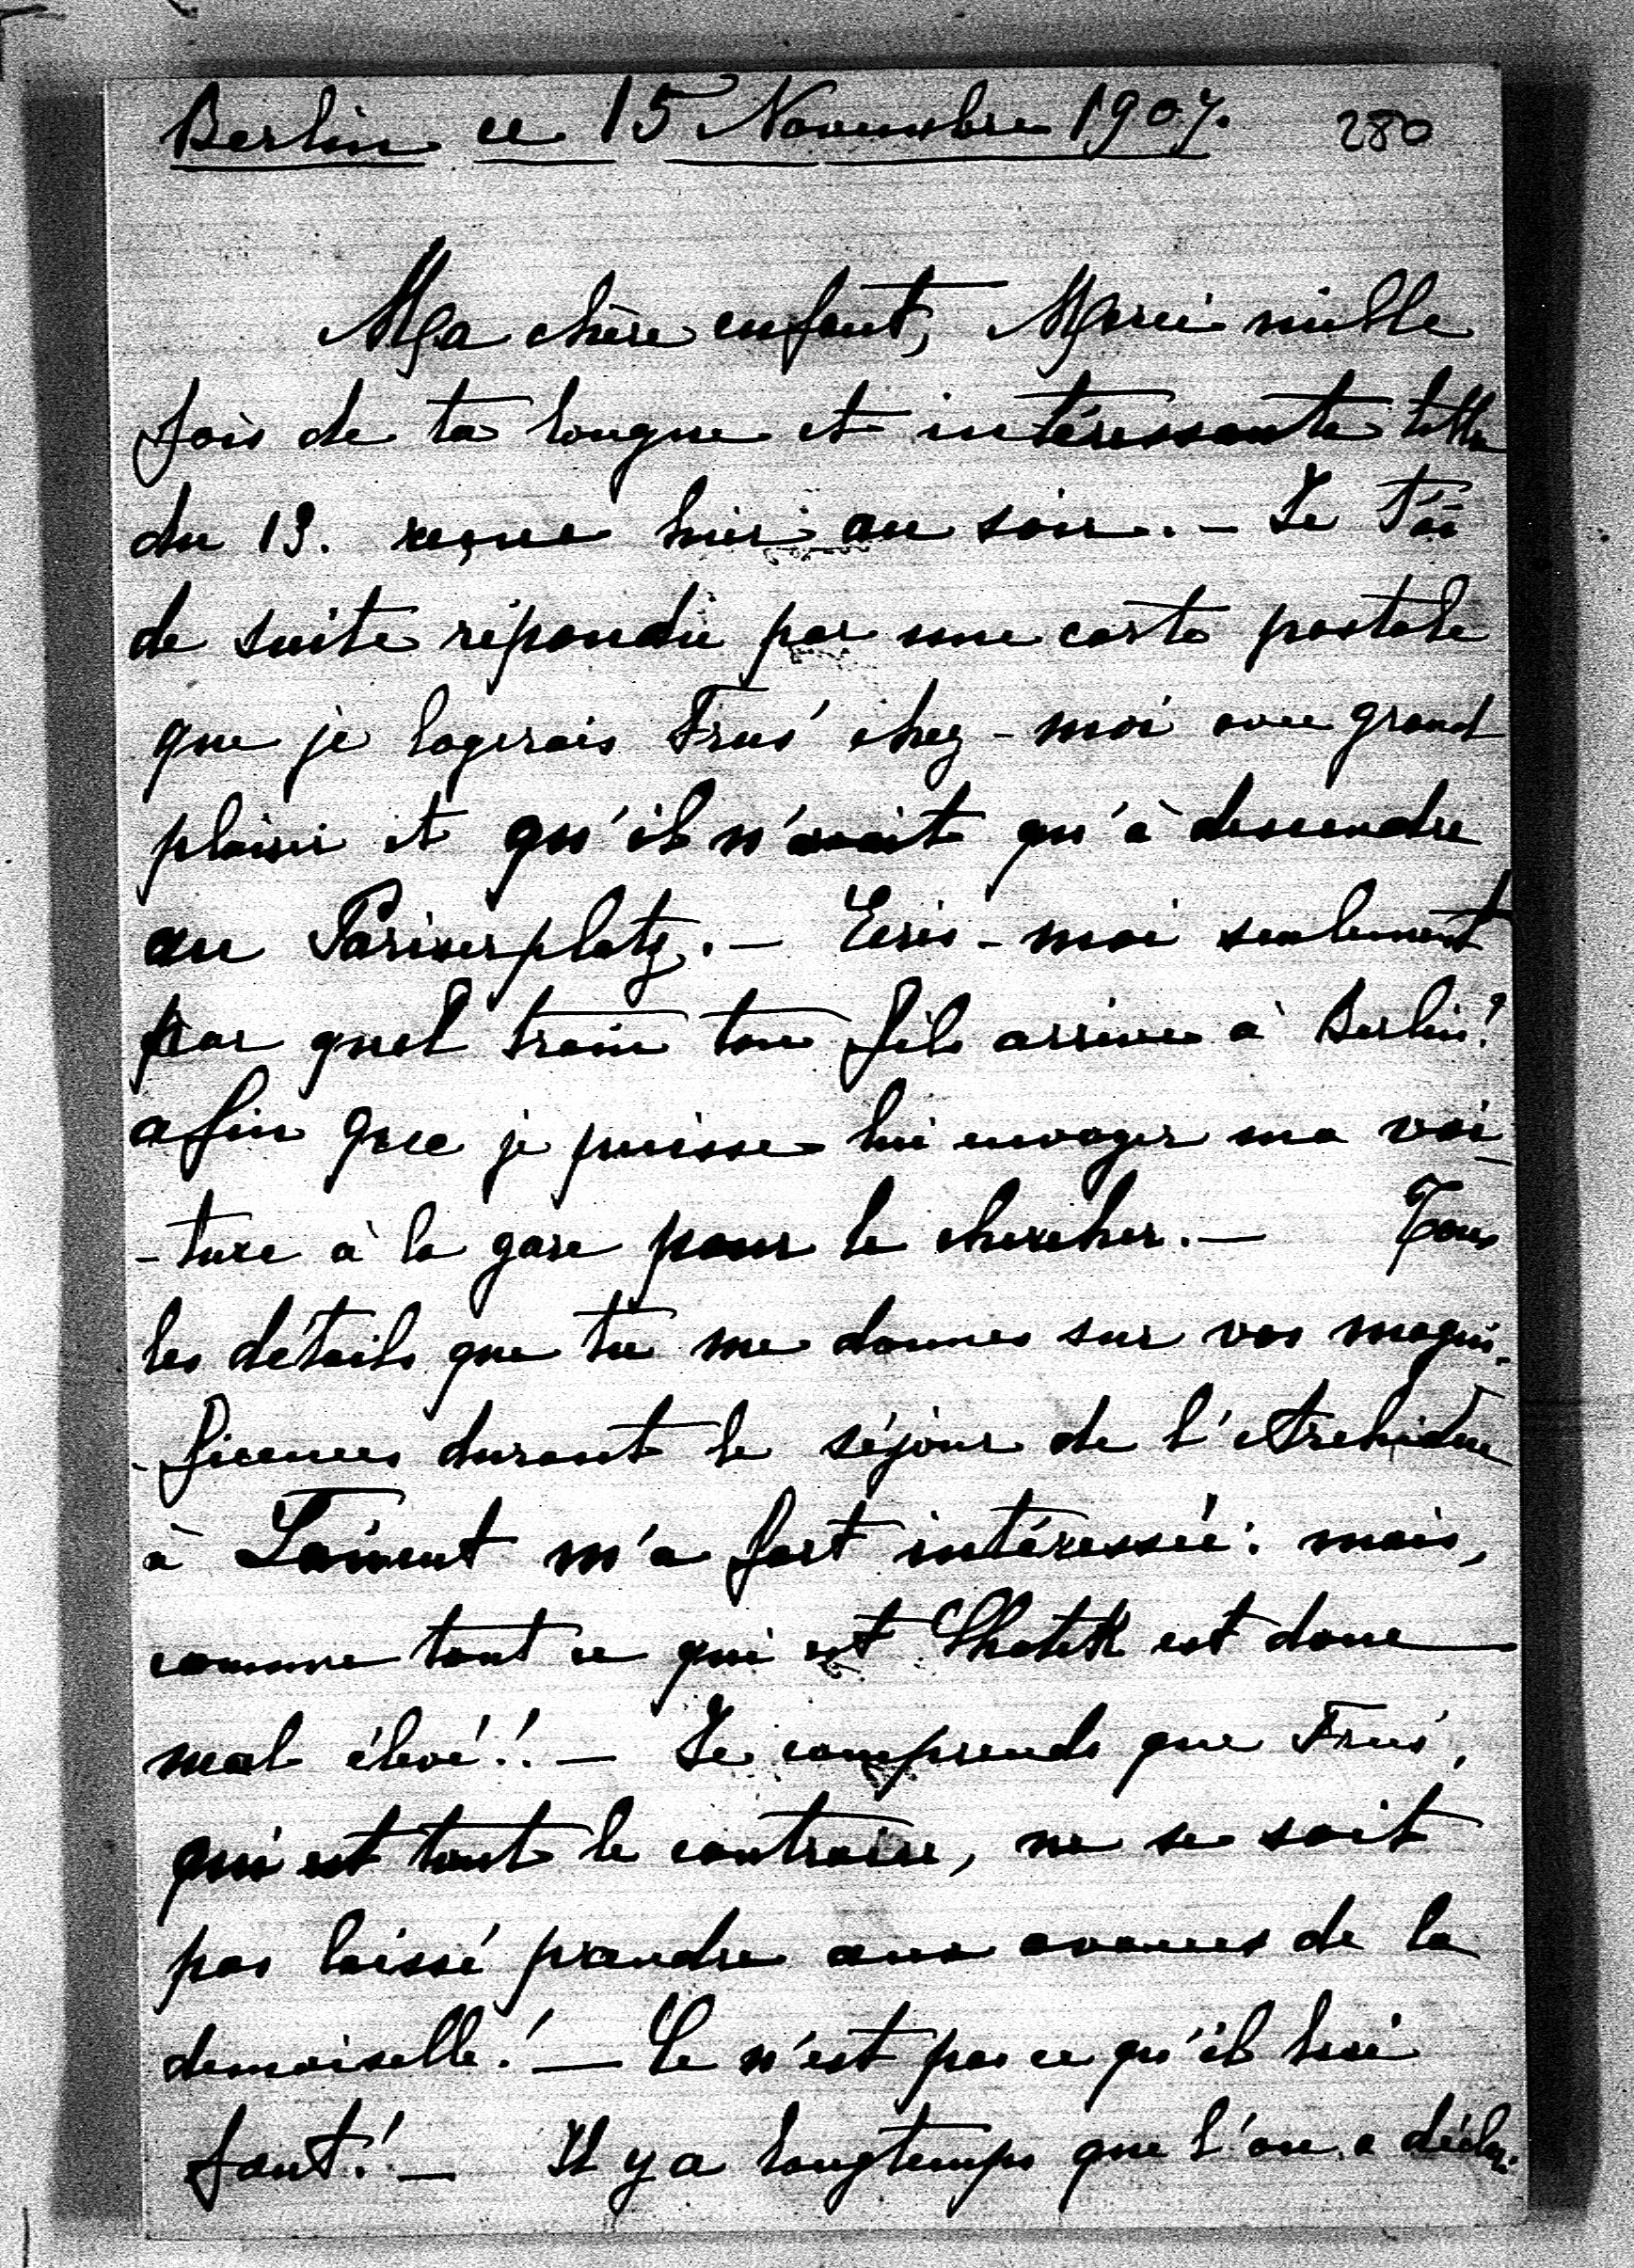 Berlin ce 15 Novembre 1907. 280
Ma chère enfant, Merci mille
fois de ta longue et intéressante lettre
du 13. reçue hier au soir. — Je t'ai
de suite répondu par une carte postale
que je logerais Frus' chez-moi avec grand
plaisir et qu'il n'avait qu'à descendre
au Pariserplatz. — Ecris-moi seulement
par quel train ton fils arrive à Berlin?
afin que je puisse lui envoyer ma voi-
-ture à la gare pour le chercher. — Tous
les détails que tu me donnes sur vos magni-
-ficences durant le séjour de l'Archiduc
à m'a fort intéressée: mais,
comme tout ce qui est Chotek est donc
mal élevé!! — Je comprends que Frus',
qui est tout le contraire, ne se soit
pas laissé prendre aux avances de la
demoiselle! — Ce n'est pas ce qu'il lui
faut! — Il y a longtemps que l'on a décla-